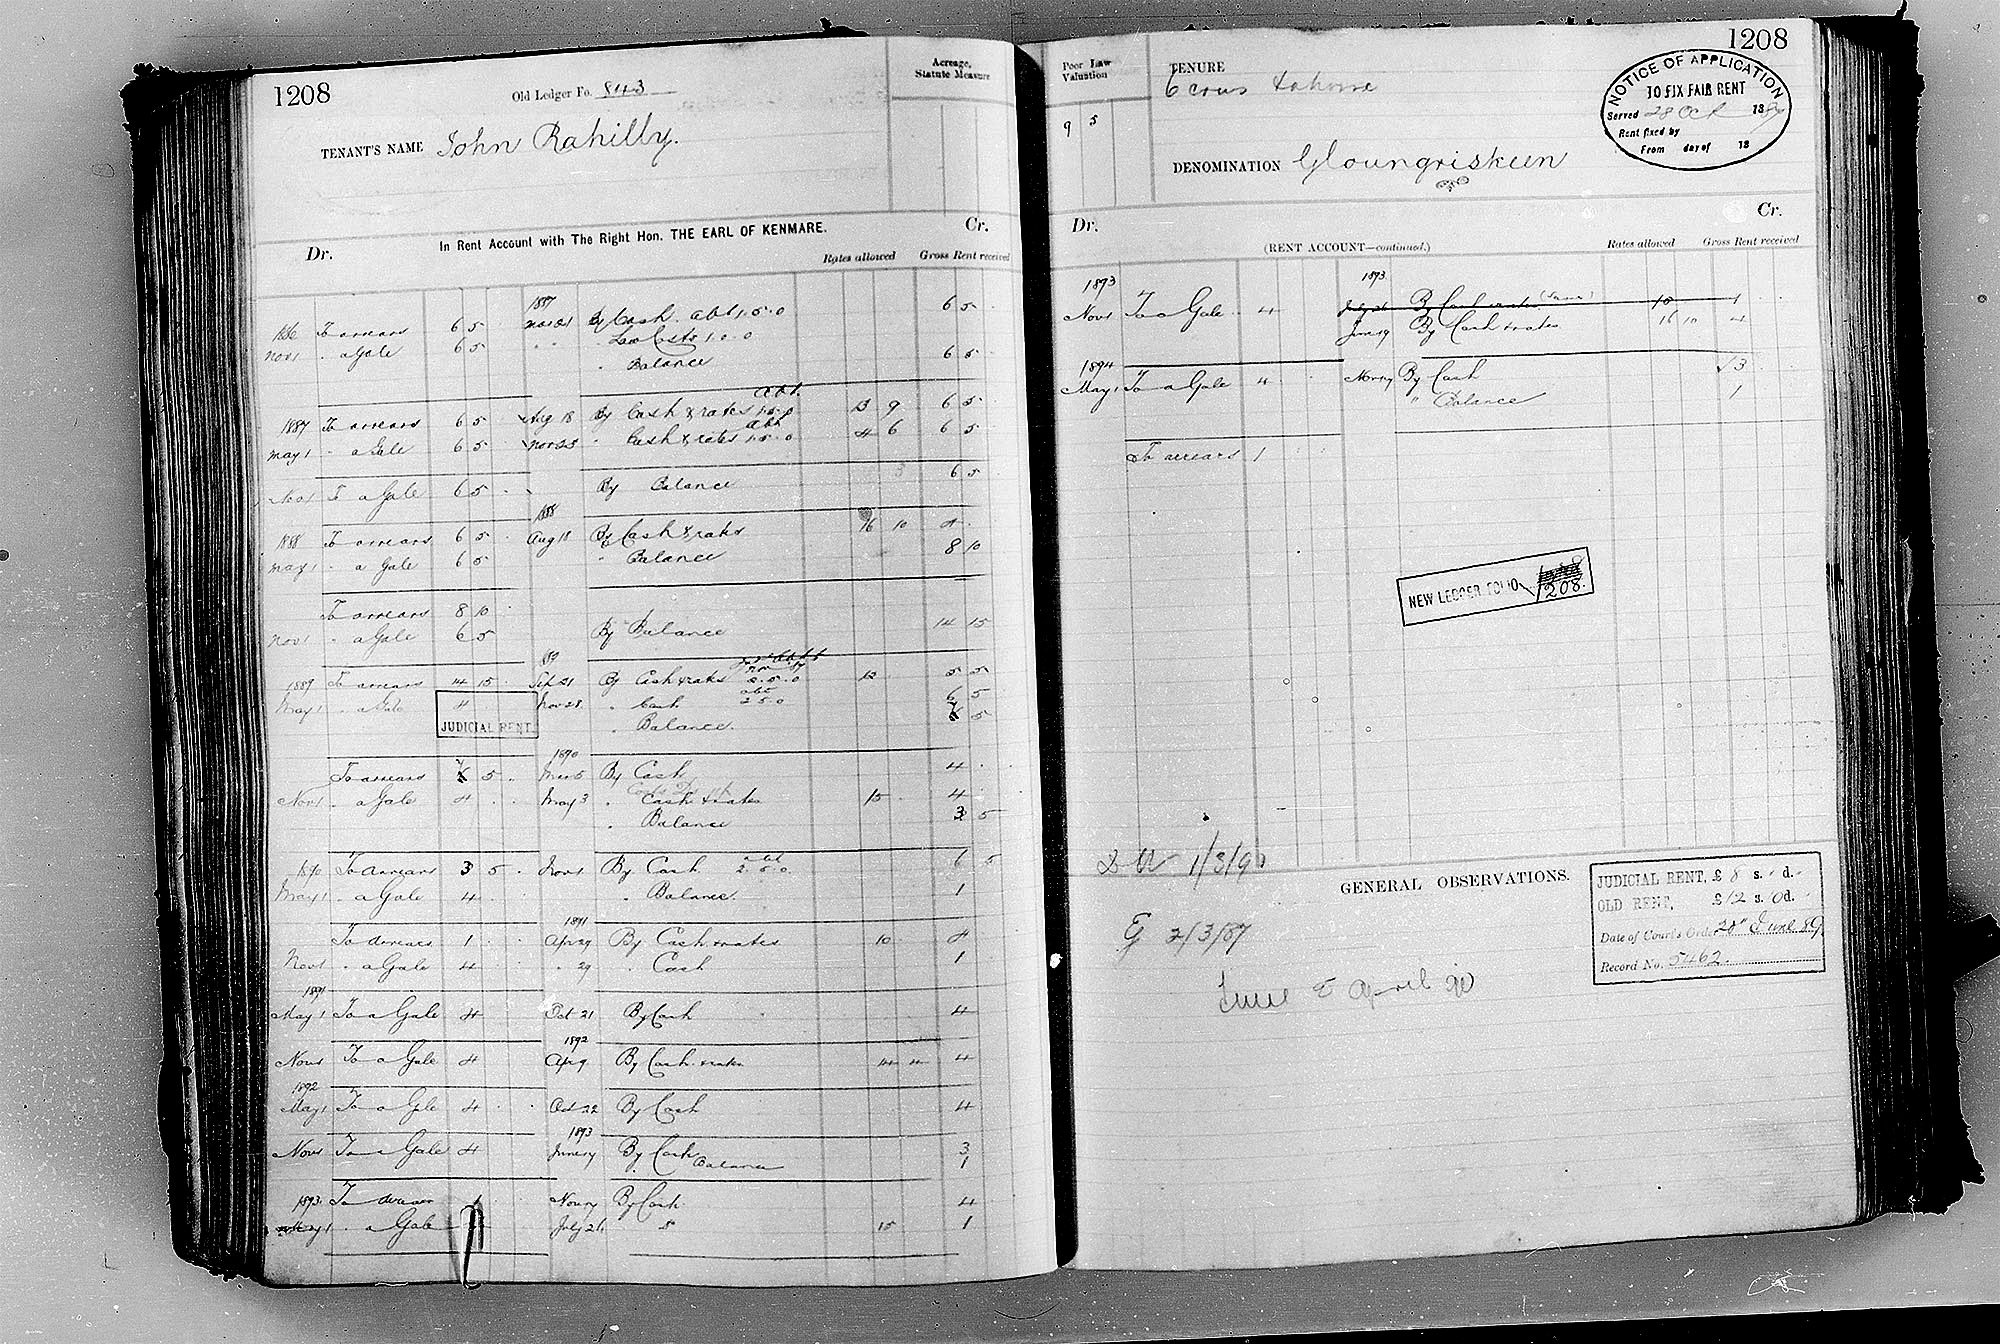 1208
Old Ledger Fo. 843
Acreage,
Statute Measure
TENANT'S NAME John Rahilly.
In Rent Account with The Right Hon. THE EARL OF KENMARE.
Dr. Cr.
Rates allowed Gross Rent received
1887
1886 To arrears 6 5 Nov 21 By Cash abt 1.5.0 6 5
Nov 1 " a Gale 6 5 " " " Law Costs 1.0.0
" Balance 6 5
abt.
1887 To arrears 6 5 Aug 18 By Cash & rates 1.5.0 13 9 6 5
abt
May 1 " a Gale 6 5 Nov 23 " Cash & rates 1.5.0 4 6 6 5
Nov 1 To a Gale 6 5 By Balance 6 5
1888
1888 To arrears 6 5 Aug 18 By Cash & rates 16 10 4
May 1 " a Gale 6 5 " Balance 8 10
To arrears 8 10
Nov 1 " a Gale 6 5 By Balance 14 15
1889 To arrears 14 15 Sep 21 By Cash & rates 2.5.0 12 5 5
May 1 " a Gale 4 Nov 28 " Cash abt 2 5 0 6 5
JUDICIAL RENT
" Balance. 7 5
1890
To arrears 7 5 Mar 5 By Cash 4
Nov 1 " a Gale 4 May 3 " Cash & rates 15 4
" Balance 3 5
1890 To Arrears 3 5 Nov 1 By Cash abt 2.5.0 6 5
May 1 " a Gale 4 " Balance. 1
1891
To arrears 1 Apr 29 By Cash & rates 10 4
Nov 1 " a Gale 4 " 29 " Cash 1
1891
May 1 To a Gale 4 Oct 21 By Cash 4
1892
Nov 1 To a Gale 4 Apr 9 By Cash & rates 14 4 4
1892
May 1 To a Gale 4 Oct 22 By Cash 4
1893
Nov 1 To a Gale 4 June 17 By Cash 3
" Balance 1
1893 To arrears 1 Nov 17 By Cash 4
May 1 " a Gale July 26 " 15 1
1208
Poor Law
Valuation
9 5
TENURE
DENOMINATION Gloungriskeen
NOTICE OF APPLICATION
TO FIX FAIR RENT
Served 28 Oct 188
Rent fixed by
From day of 18
Dr. Cr.
(RENT ACCOUNT—continued.)
Rates allowed Gross Rent received
1893 1893
Nov 1 To a Gale 4 July 26 By Cash rates 15 1
June 19 By Cash & rates 16 10 4
1894
May 1 To a Gale 4 Nov 17 By Cash 3
" Balance 1
To arrears 1
NEW LEDGER FOLIO 1208.
GENERAL OBSERVATIONS.
1/3/90
G 2/3/87
April 90
JUDICIAL RENT, £ 8 s. d.
OLD RENT, £ 12 s. 10 d.
Date of Court's Order 20" June 89
Record No. 5462.